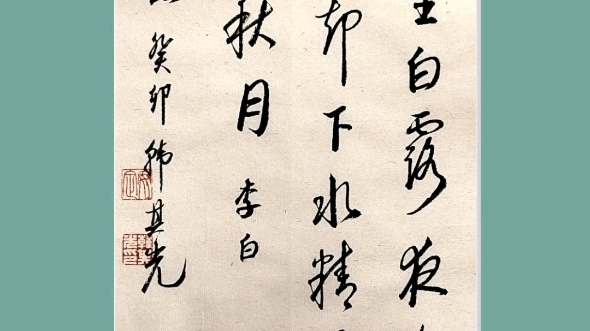 白露夜
却下水精
秋月 李白
癸卯 韩其光